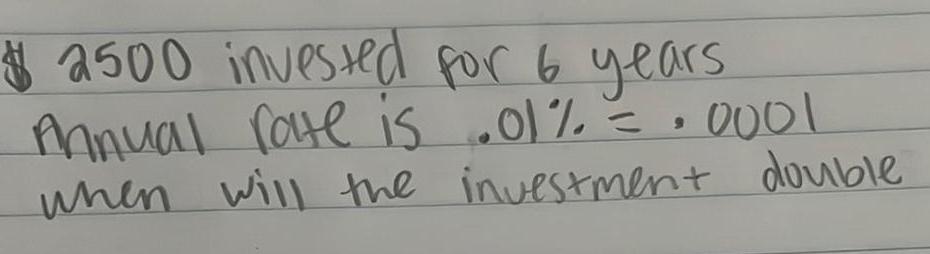 $ 2500 invested for 6 years
Annual rate is .01% = .0001
when will the investment double